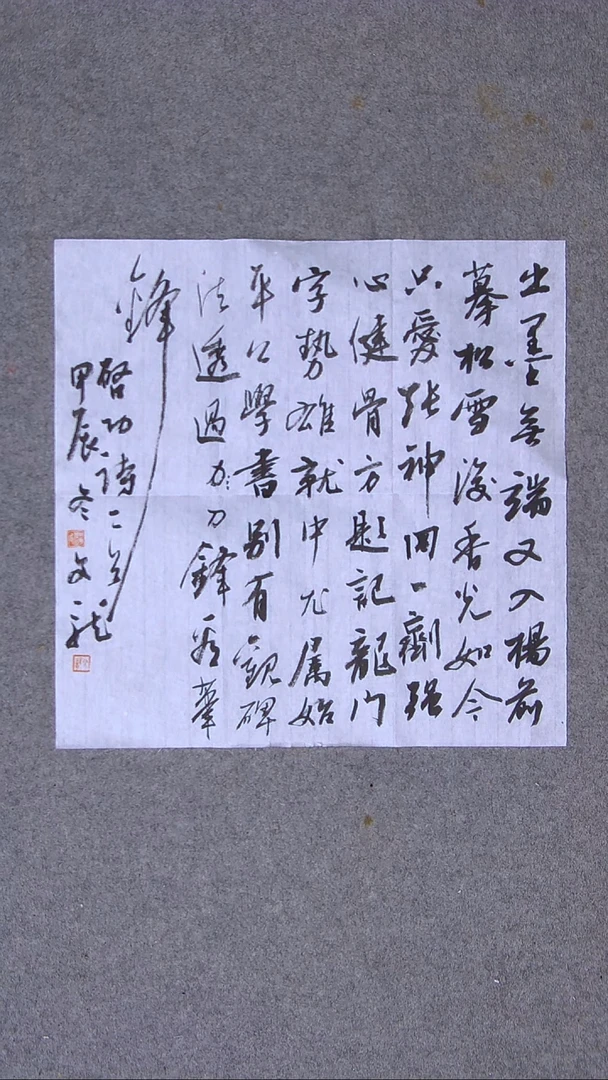 出墨無端又入楊前
摹松雪後香光如今
只愛張神冏一劑强
心健骨方題記龍門
字勢雄就中尤属始
平公學書别有觀碑
法透過力刀鋒看筆
鋒
啓功詩二首
甲辰冬文龍